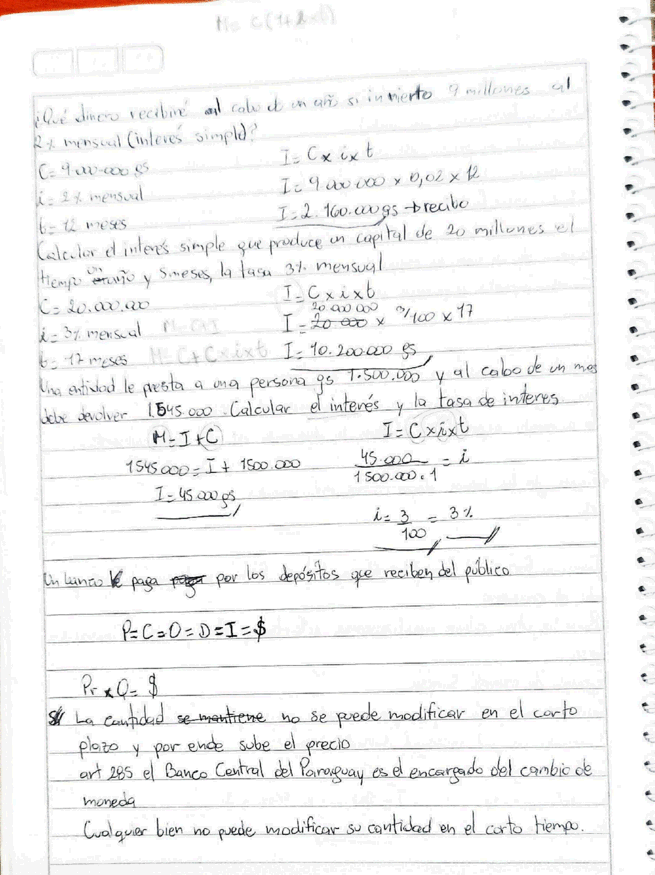 M= C(1+ixt)
¿Qué dinero recibiré al cabo de un año si invierto 9 millones al
2% mensual (interés simple)?
C= 9.000.000 gs
i= 2% mensual
t= 12 meses
I= C x i x t
I= 9 000 000 x 0,02 x 12
I= 2.160.000 gs → recibo
Calcular el interés simple que produce un capital de 20 millones el
tiempo un año y 5 meses, la tasa 3% mensual
C= 20.000.000
i= 3% mensual
t= 17 meses
M= C+I
M= C+Cxixt
I= C x i x t
20 000 000
I= 20 000 x 3/100 x 17
I= 10.200.000 gs
Una entidad le presta a una persona gs 1.500.000 y al cabo de un mes
debe devolver 1.545.000 Calcular el interés y la tasa de interes
M= I+C
1545.000= I+ 1500.000
I= 45.000 gs
I= C x i x t
45.000/1500.000.1 = i
i= 3/100 = 3%
Un banco paga paga por los depósitos que reciben del público
P=C=O=D=I=$
Pr x Q= $
La cantidad se mantiene no se puede modificar en el corto
plazo y por ende sube el precio
art 285 el Banco Central del Paraguay es el encargado del cambio de
moneda
Cualquier bien no puede modificar su cantidad en el corto tiempo.